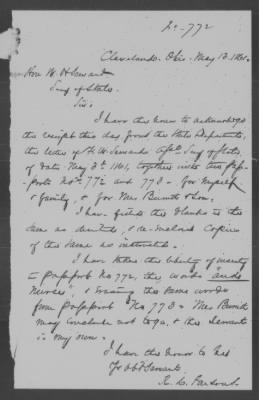 No-772
Cleveland, Ohio. May 13. 1861.
Hon W. H Seward
Secy of State.
Sir.
I have the honor to acknowledge
the receipt this day from the State Department,
the letter of F. W. Seward Asst. Secy of State,
of date May 3d 1861, together with two pass-
ports Nos. 772 and 773 - for myself
& family, & for Mrs Burnett & Son.
I have filled the blanks in the
same as
the same as instructed.
I have taken the liberty of inserting
in passport No 772, the words "and
Nurse", & erasing the same words
from passport No 773 - Mrs Burnett
may conclude not to go, & the Servant
is my own.
I have the honor to be
Yr obt Servant.
R. C. Parsons.